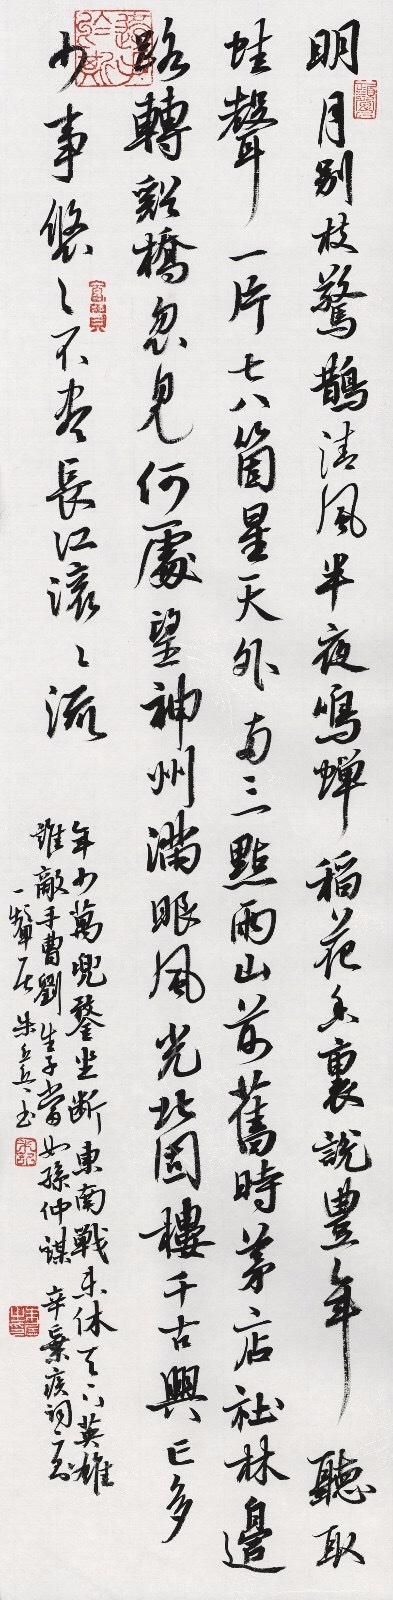 明月别枝驚鵲清風半夜鳴蟬稻花香裏説豊年聽取
蛙聲一片七八箇星天外兩三點雨山前舊時茅店社林邊
路轉谿橋忽見何處望神州滿眼風光北固樓千古興亡多
少事悠々不盡長江滚々流
年少萬兜鍪坐断東南戰未休天下英雄
誰敵手曹劉生子當如孫仲謀辛棄疾词二首